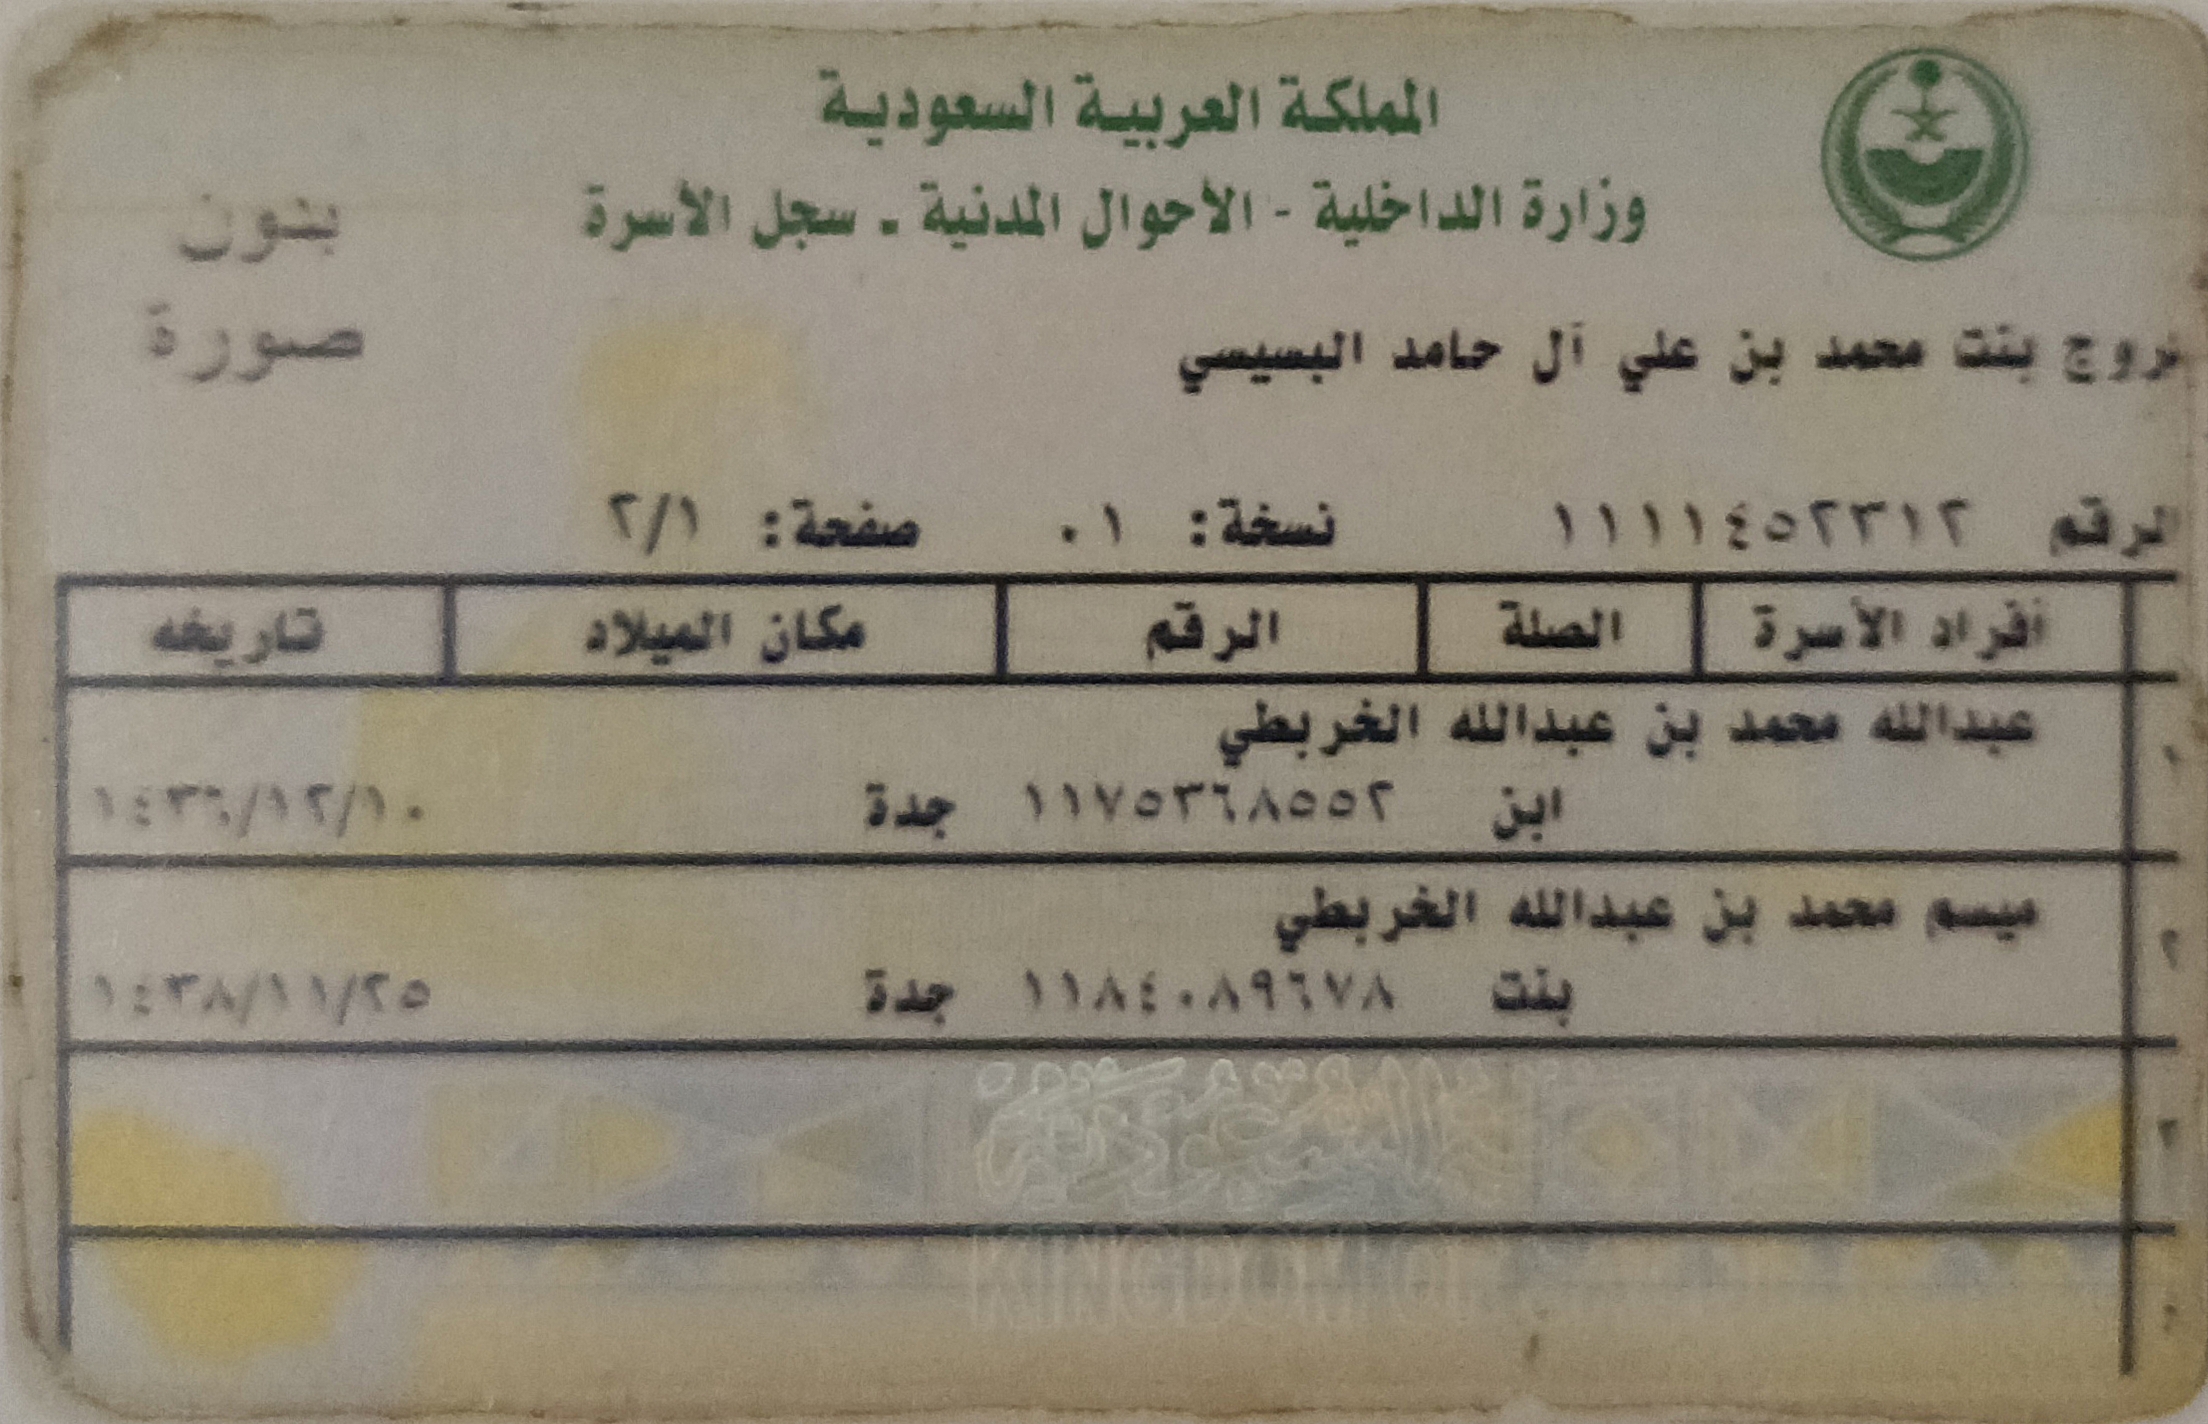 المملكة العربية السعودية
وزارة الداخلية - الأحوال المدنية - سجل الأسرة
بدون
صورة
بنت محمد بن علي آل حامد البسيسي
الرقم ١١١١٤٥٢٣١٢ نسخة: ٠١ صفحة: ٢/١
أفراد الأسرة الصلة الرقم مكان الميلاد تاريخه
١ عبدالله محمد بن عبدالله الخربطي
ابن ١١٧٥٣٦٨٥٥٢ جدة ١٤٣٦/١٢/١٠
٢ ميسم محمد بن عبدالله الخربطي
بنت ١١٨٤٠٨٩٦٧٨ جدة ١٤٣٨/١١/٢٥
٣
KINGDOM OF